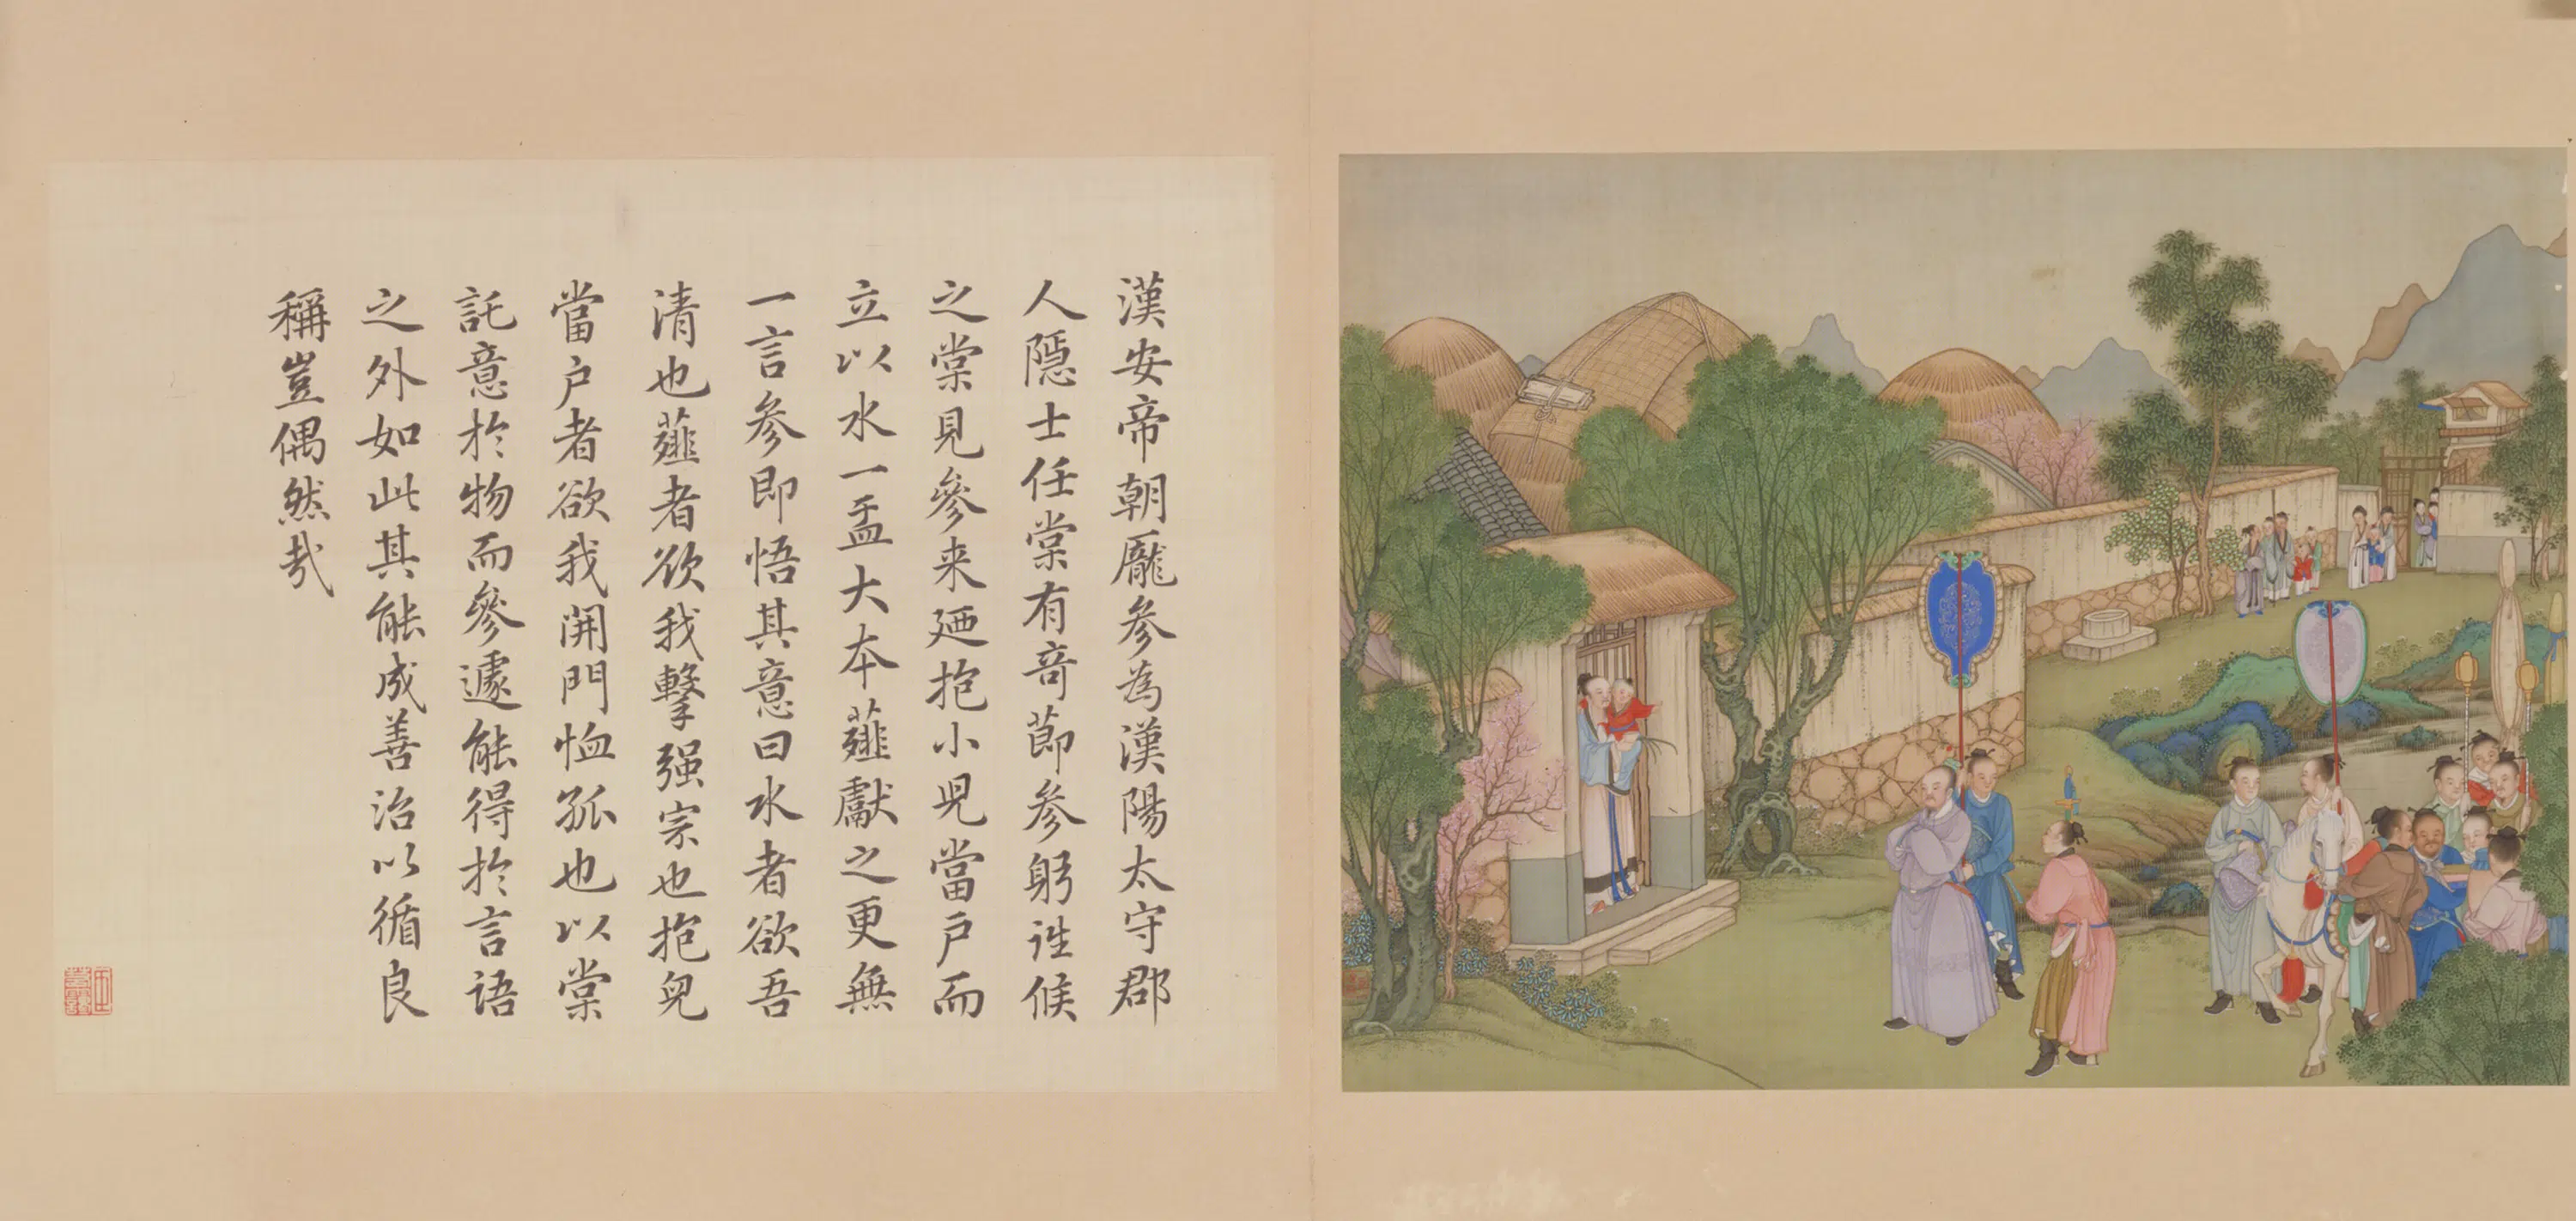 漢安帝朝龐參為漢陽太守郡
人隱士任棠有奇節參躬詣候
之棠見參来廼抱小児當户而
立以水一盂大本薤獻之更無
一言參即悟其意曰水者欲吾
清也薤者欲我擊强宗也抱兒
當户者欲我開門恤孤也以棠
託意於物而參遽能得於言語
之外如此其能成善治以循良
稱豈偶然哉